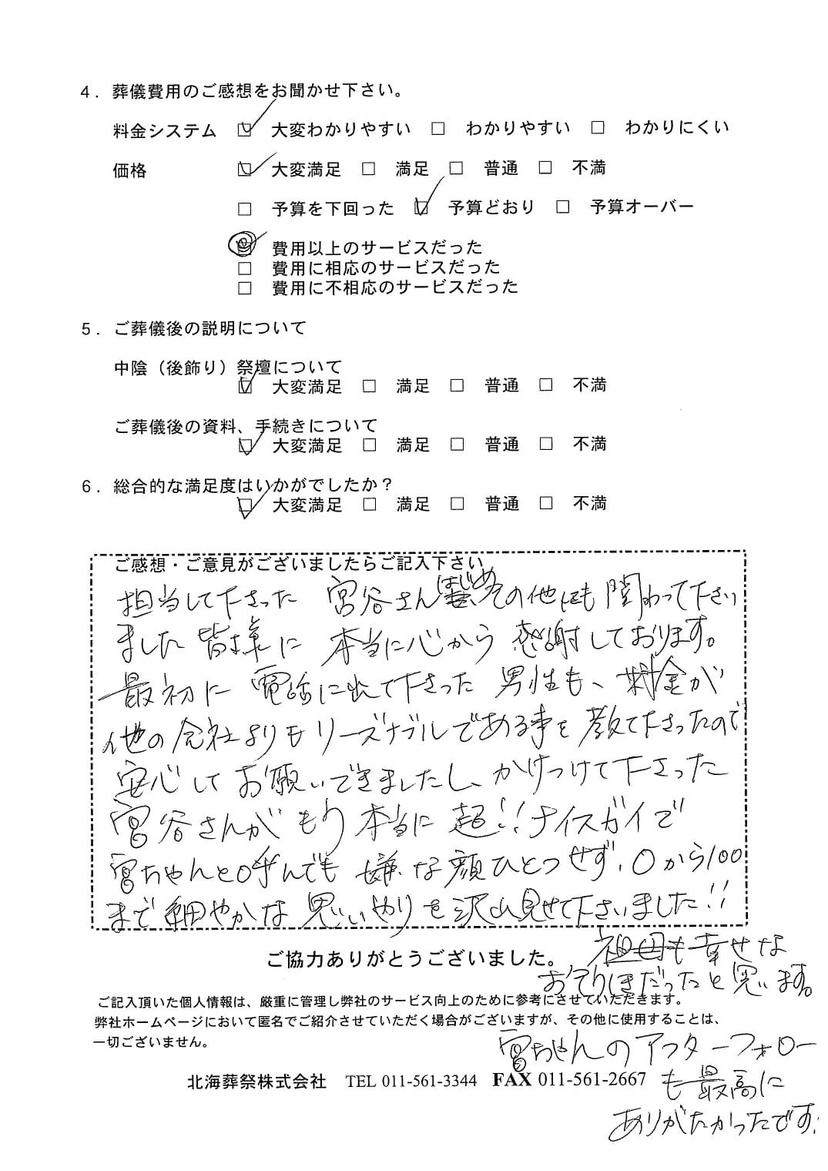 4．葬儀費用のご感想をお聞かせ下さい。
料金システム ☑ 大変わかりやすい □ わかりやすい □ わかりにくい
価格 ☑ 大変満足 □ 満足 □ 普通 □ 不満
□ 予算を下回った ☑ 予算どおり □ 予算オーバー
◎ 費用以上のサービスだった
□ 費用に相応のサービスだった
□ 費用に不相応のサービスだった
5．ご葬儀後の説明について
中陰（後飾り）祭壇について
☑ 大変満足 □ 満足 □ 普通 □ 不満
ご葬儀後の資料、手続きについて
☑ 大変満足 □ 満足 □ 普通 □ 不満
6．総合的な満足度はいかがでしたか？
☑ 大変満足 □ 満足 □ 普通 □ 不満
ご感想・ご意見がございましたらご記入下さい
担当して下さった 宮谷さんはじめその他にも関わって下さい
ました皆様に 本当に心から 感謝しております。
最初に 電話に出て下さった 男性も、料金が
他の会社よりもリーズナブルである事を教て下さったので
安心して お願いできましたし、かけつけて下さった
宮谷さんが もう 本当に 超!!ナイスガイで
宮ちゃんと呼んでも 嫌な顔ひとつせず、0から100
まで細やかな 思いやりを沢山見せて下さいました!!
祖母も幸せな
おそうしきだったと思います。
ご協力ありがとうございました。
ご記入頂いた個人情報は、厳重に管理し弊社のサービス向上のために参考にさせていただきます。
弊社ホームページにおいて匿名でご紹介させていただく場合がございますが、その他に使用することは、
一切ございません。
宮ちゃんのアフターフォロー
も最高に
ありがたかったです!
北海葬祭株式会社 TEL 011-561-3344 FAX 011-561-2667